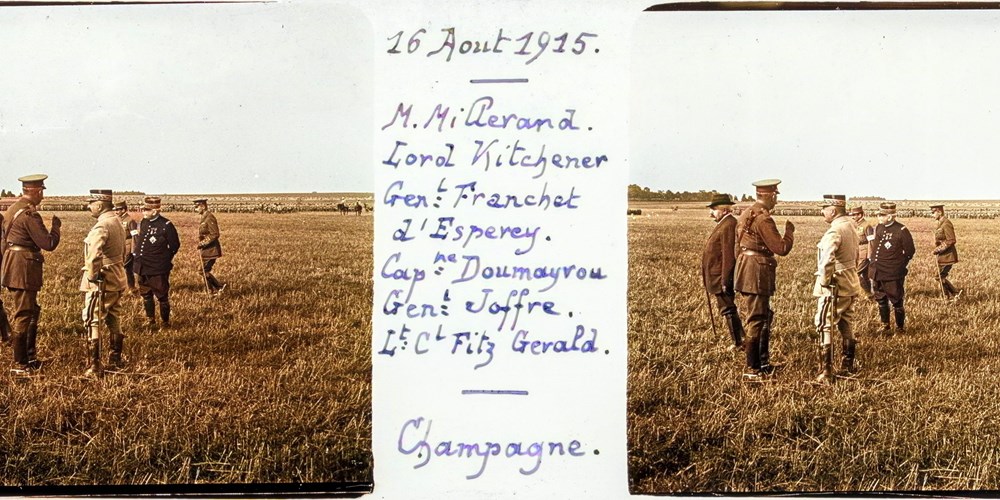 16 Aout 1915.
M. Millerand.
Lord Kitchener
Gen.t Franchet
d'Esperey.
Cap.ne Doumayrou
Gen.t Joffre.
Lt. Ct Fitz Gerald.
Champagne.